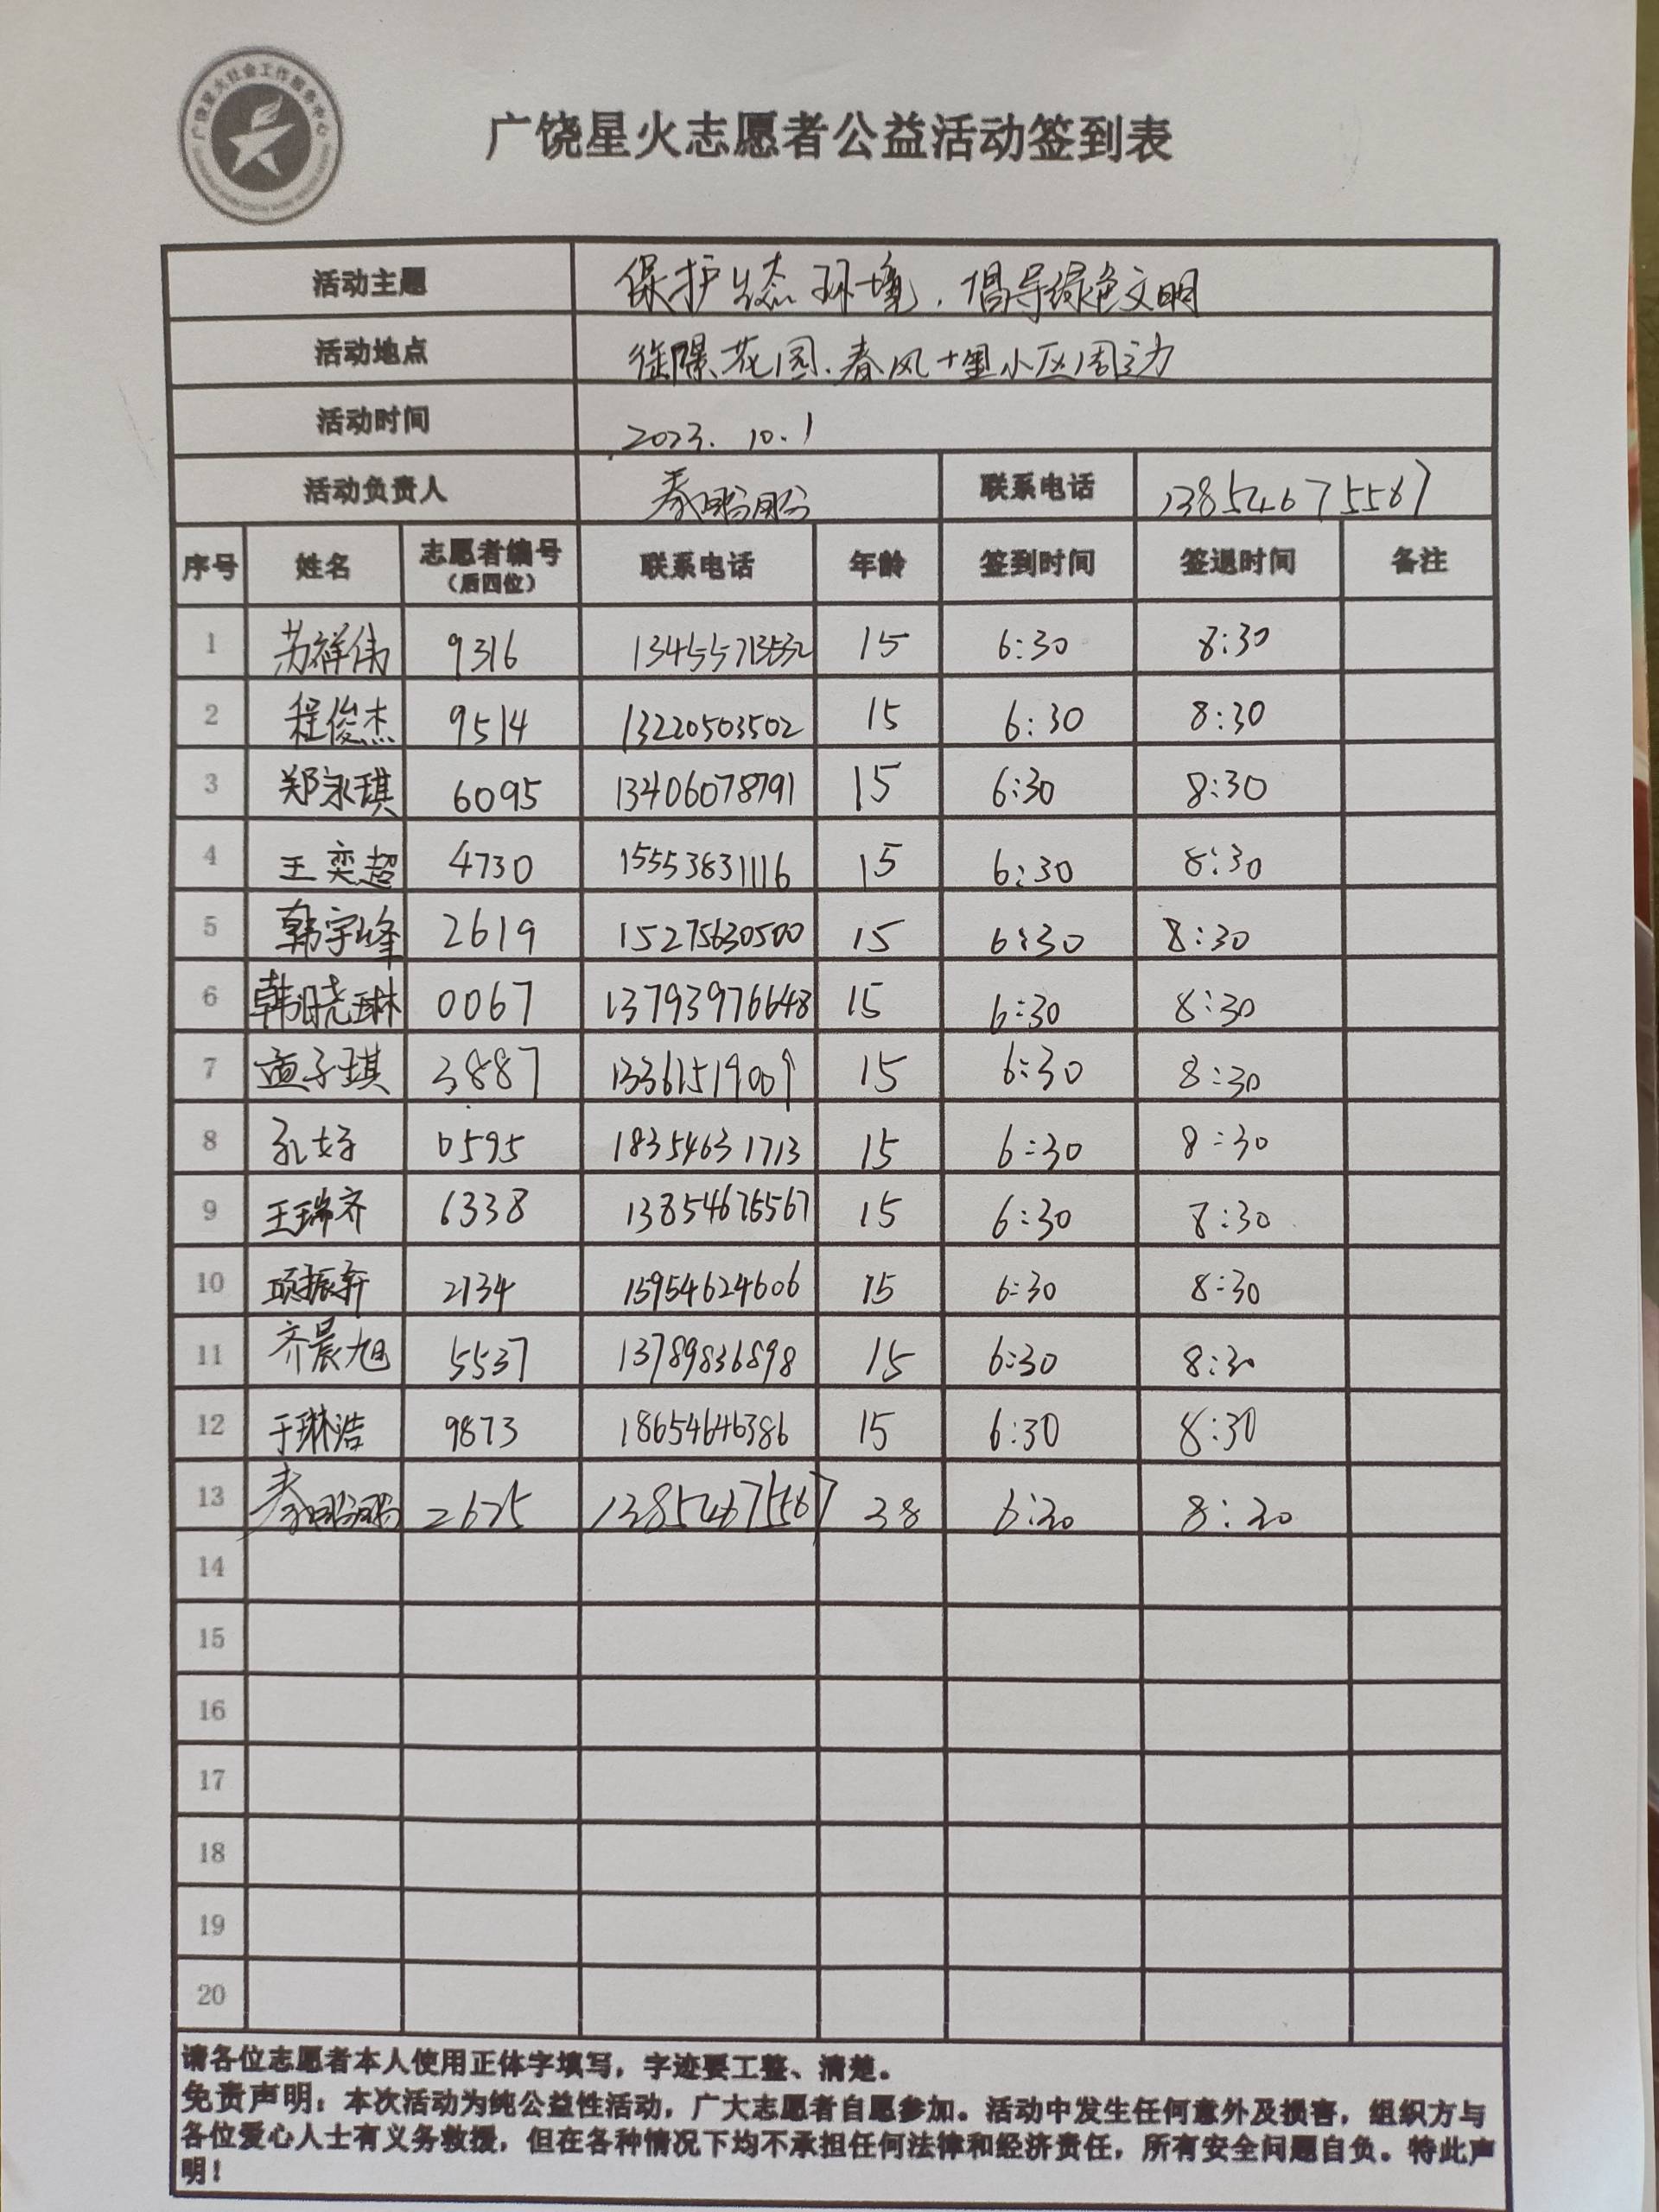 广饶星火社会工作服务中心
广饶星火志愿者公益活动签到表
活动主题 保护生态环境，倡导绿色文明
活动地点 花园.春风十里小区周边
活动时间 2023.10.1
活动负责人 联系电话 13854675567
序号 姓名 志愿者编号（后四位） 联系电话 年龄 签到时间 签退时间 备注
1 苏祥伟 9316 13455713532 15 6:30 8:30
2 程俊杰 9514 13220503502 15 6:30 8:30
3 郑永琪 6095 13406078791 15 6:30 8:30
4 王奕超 4730 15553831116 15 6:30 8:30
5 韩宇峰 2619 15275630500 15 6:30 8:30
6 韩晓琳 0067 13793976648 15 6:30 8:30
7 孟子琪 3887 15 6:30 8:30
8 孔好 0595 18354631713 15 6:30 8:30
9 王瑞齐 6338 13854675567 15 6:30 8:30
10 项振轩 2134 15954624606 15 6:30 8:30
11 齐晨旭 5537 13789836898 15 6:30 8:30
12 于琳浩 9873 18654646386 15 6:30 8:30
13 2675 13854675567 38 6:30 8:30
14
15
16
17
18
19
20
请各位志愿者本人使用正体字填写，字迹要工整、清楚。
免责声明：本次活动为纯公益性活动，广大志愿者自愿参加。活动中发生任何意外及损害，组织方与
各位爱心人士有义务救援，但在各种情况下均不承担任何法律和经济责任，所有安全问题自负。特此声
明！